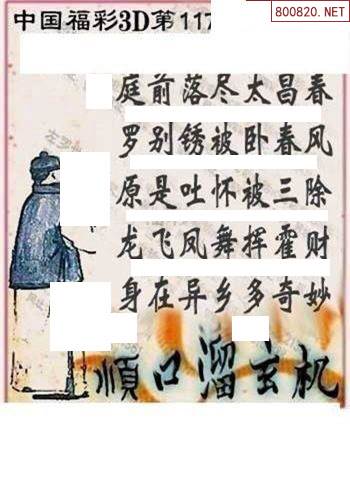 800820.NET
中国福彩3D第117
庭前落尽太昌春
罗别锈被卧春风
原是吐怀被三除
龙飞凤舞挥霍财
身在异乡多奇妙
顺口溜玄机